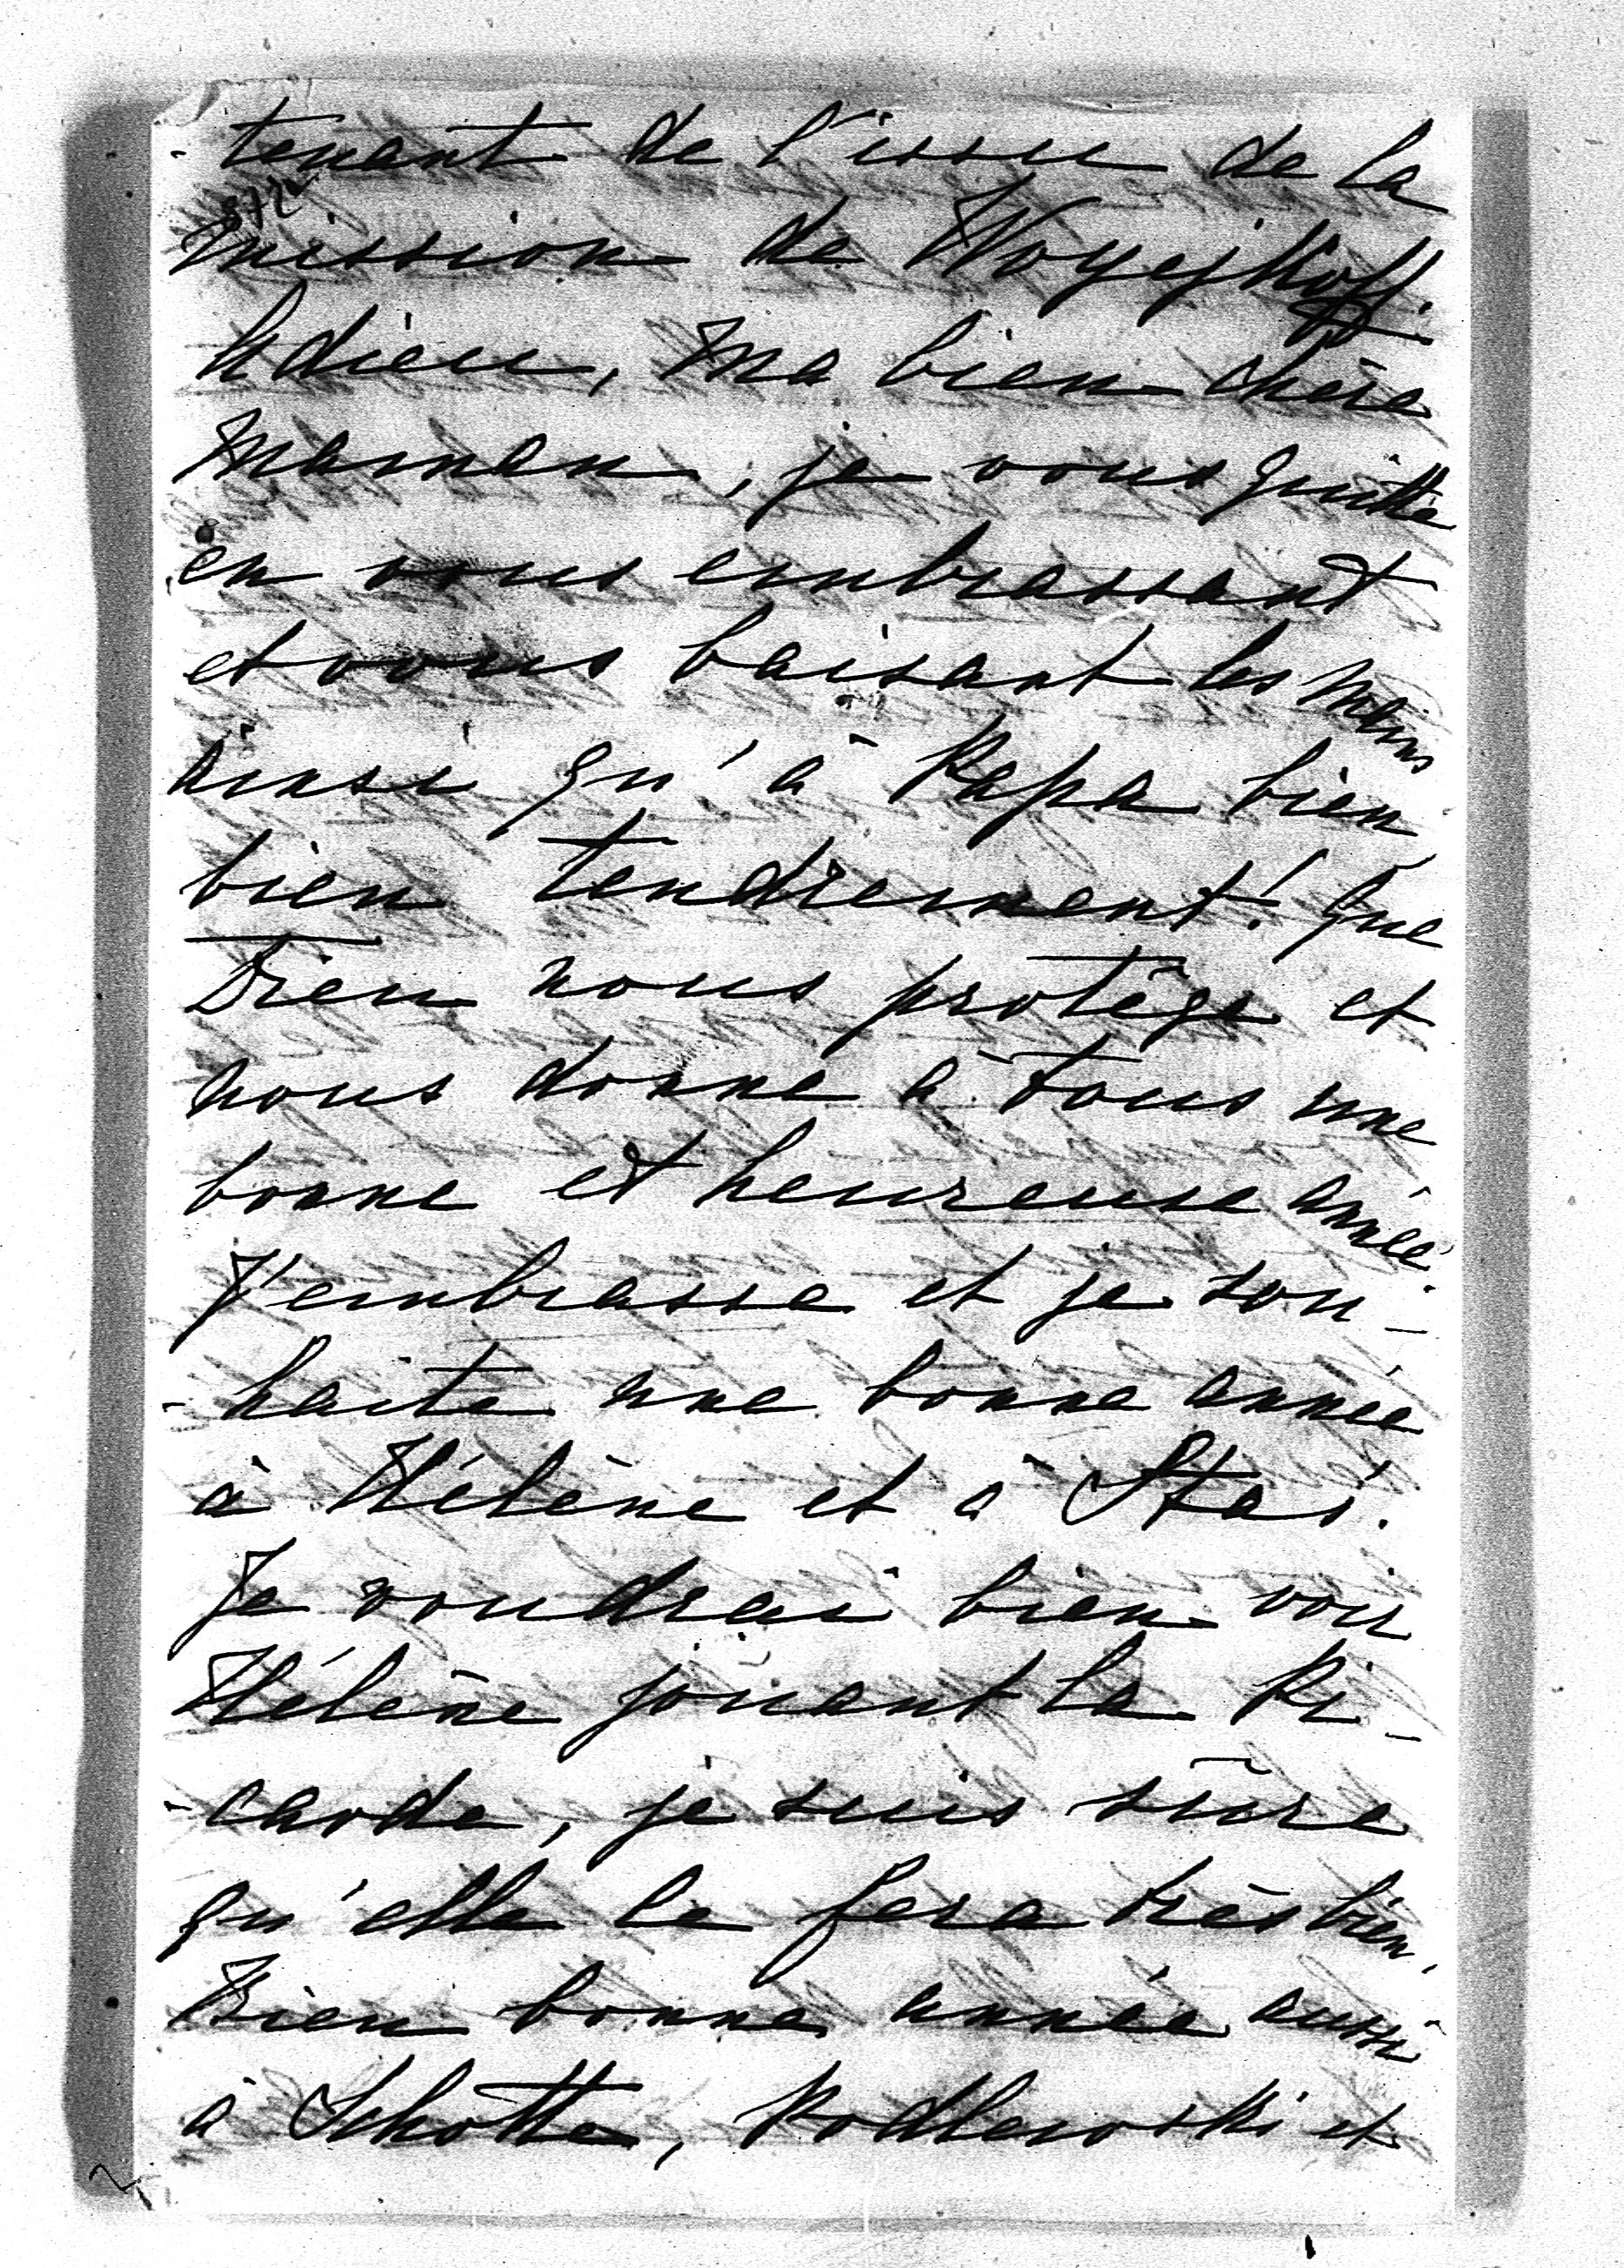 - tenant de l'issue de la
mission de Woyeykoff.
Adieu, ma bien chère
Maman, je vous quitte
en vous embrassant
et vous baisant les mains
ainsi qu'à Papa bien,
bien tendrement! Que
Dieu nous protège et
nous donne à tous une
bonne et heureuse année.
J'embrasse et je sou-
- haite une bonne année
à Hélène et à Stas.
Je voudrai bien voir
Hélène jouant la Pi-
- carde, je suis sûre
qu'elle le fera très bien.
Bien bonne année aussi
à Schotte, Podlewski et